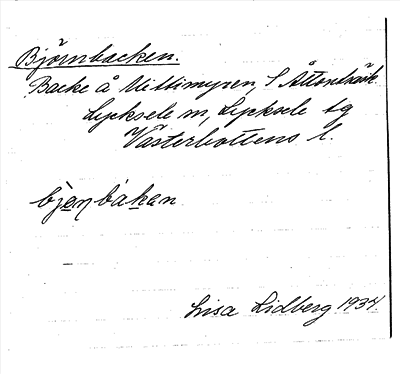 Björnbacken.
Backe å Mittimyren, S Åttonträsk
Lycksele sn, Lycksele tg
Västerbottens l.
bjœ̨ṇbàkan
Lisa Lidberg 1934.